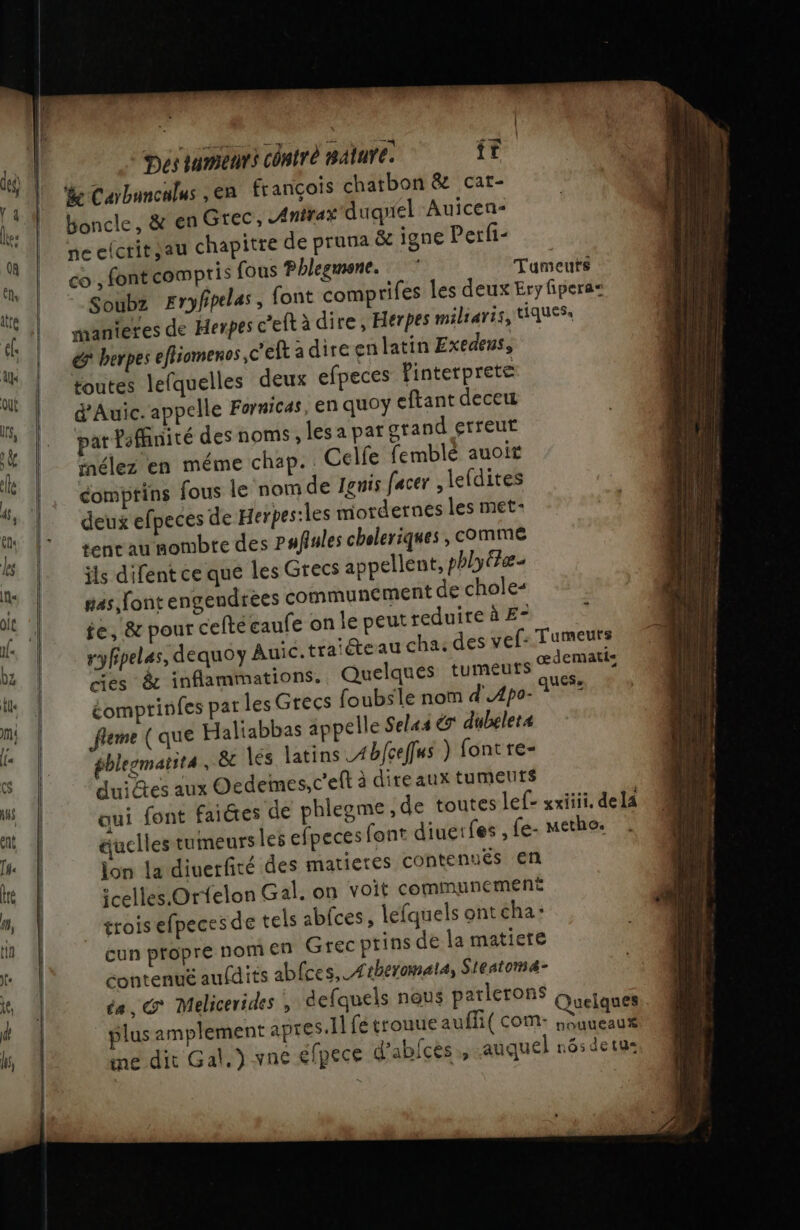 Des tumeurs côntré nature. 11
& Carbunculus , en françois charbon & car-
boncle, & en Grec, Antrax duquel Auicen-
ne eſcrit, au chapitre de pruna & igne Perſi-
co , ſont compris ſous Phlegmone. Tumeurs
Soubz Eryſipelas, ſont compriſes les deux Eryſipera-
manieres de Herpes c'eſt à dire , Herpes miliaris, tiques.
& herpes eſtiomenos, c'eſt à dire en latin Exedens,
toutes leſquelles deux eſpeces l'interprete
d'Auic. appelle Formicas, en quoy eſtant deceu
par l'affinité des noms, les a par grand erreur
mélez en méme chap. Celſe ſemblé auoir
comprins ſous le nom de Ignis ſacer , leſdites
deux eſpeces de Herpes: les mordernes les met-
tent au nombre des Puſtules choleriques , comme
ils diſent ce que les Grecs appellent, phlyctæ-
nas, ſont engendrees communément de chole-
re, & pour ceſte cauſe on le peut reduire à E-
ryſipelas, dequoy Auic. traicte au cha. des veſ- Tumeurs
cies & inflammations. Quelques tumeurs œdemati-
comprinſes par les Grecs ſoubs le nom d'Apo- ques.
ſteme ( que Haliabbas appelle Selaa & dubeleta
phlegmatita , & les latins Abſceſſus ) ſont re-
duictes aux Oedemes, c'eſt à dire aux tumeurs
qui ſont faictes de phlegme, de toutes leſ- xxiiii. de la
quelles tumeurs les eſpeces ſont diuerſes , ſe- Metho.
lon la diuerſité des matieres contenuës en
icelles. Or ſelon Gal. on voit communement
trois eſpeces de tels abſces, leſquels ont cha-
cun propre nom en Grec prins de la matiere
contenuë auſdits abſces, Atheromata, Steatoma-
ta, & Melicerides , deſquels nous parlerons Quelques
plus amplement apres. Il ſe trouue auſſi ( com- nouueaux
me dit Gal. ) vne eſpece d'abſces , auquel nõs de tu-